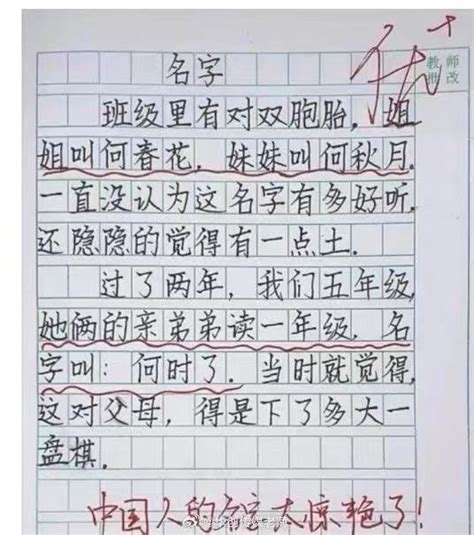 优+
教师
批改
名字
班级里有对双胞胎，姐
姐叫何春花，妹妹叫何秋月.
一直没认为这名字有多好听,
还隐隐的觉得有一点土.
过了两年，我们五年级,
她俩的亲弟弟读一年级.名
字叫：何时了.当时就觉得,
这对父母，得是下了多大一
盘棋.
中国人的名字太惊艳了!